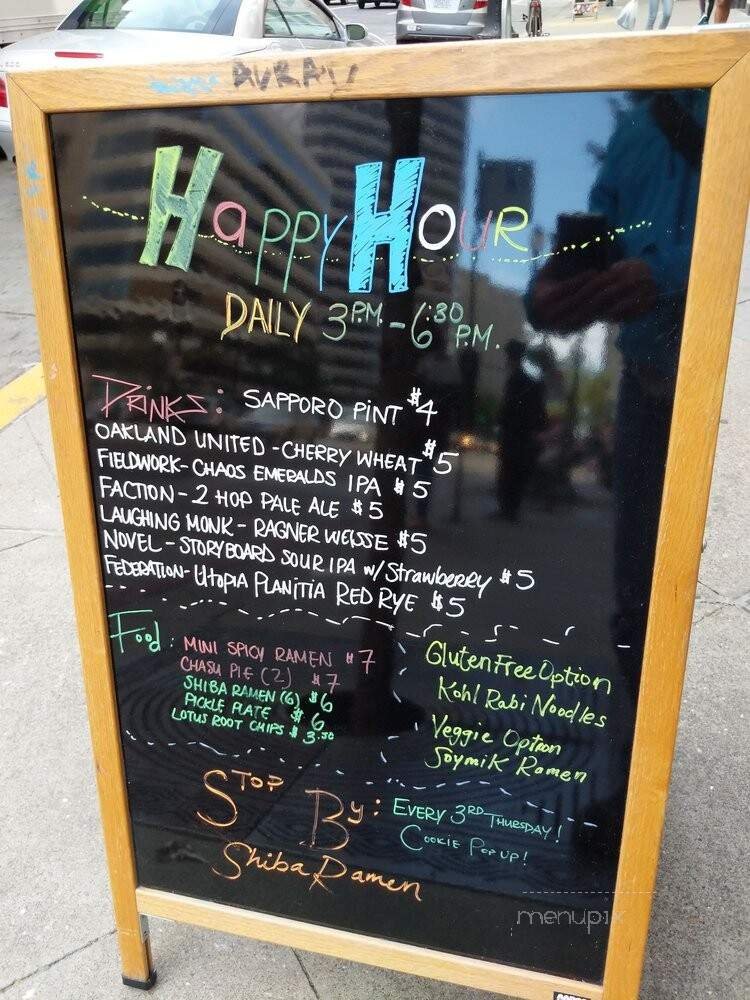 HAPPY HOUR
DAILY 3 P.M. - 6:30 P.M.
DRINKS: SAPPORO PINT $4
OAKLAND UNITED - CHERRY WHEAT $5
FIELDWORK - CHAOS EMERALDS IPA $5
FACTION - 2 HOP PALE ALE $5
LAUGHING MONK - RAGNER WEISSE $5
NOVEL - STORYBOARD SOUR IPA w/ Strawberry $5
FEDERATION - UTOPIA PLANITIA RED RYE $5
Food: MINI SPICY RAMEN $7
CHASU PIE (2) $7
SHIBA RAMEN (6) $6
PICKLE PLATE $6
LOTUS ROOT CHIPS $3.50
Gluten Free Option
Kohl Rabi Noodles
Veggie Option
Soymilk Ramen
STOP BY:
Shiba Ramen
EVERY 3RD THURSDAY!
COOKIE POP UP!
menupix